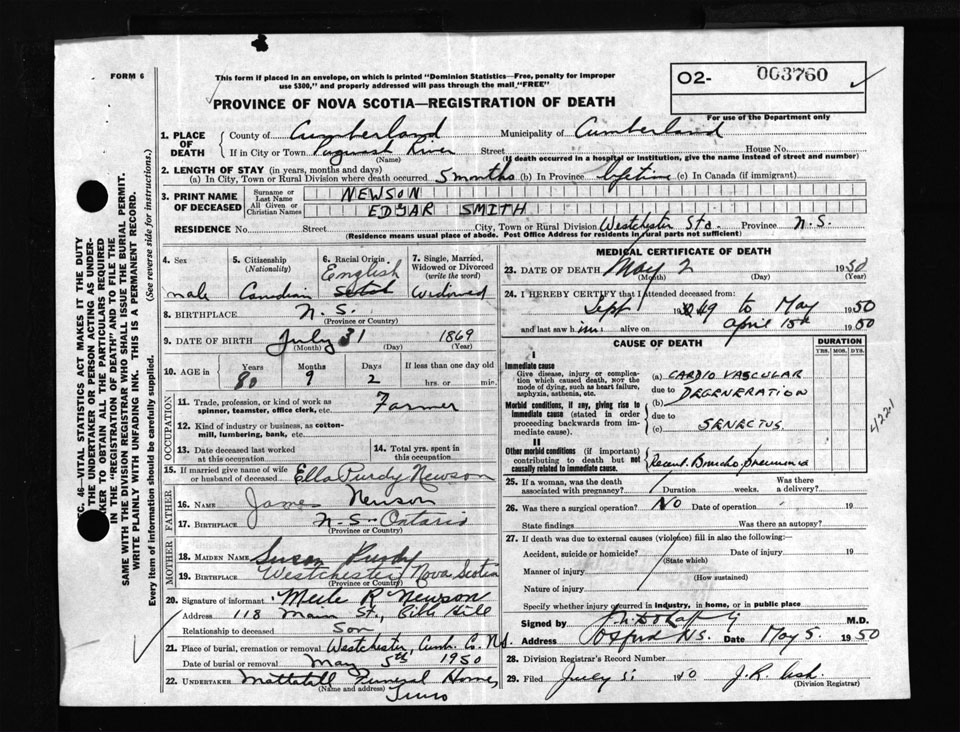 FORM 6
This form if placed in an envelope, on which is printed "Dominion Statistics—Free, penalty for improper
use $300," and properly addressed will pass through the mail "FREE"
O2- 003760
For use of the Department only
PROVINCE OF NOVA SCOTIA—REGISTRATION OF DEATH
SEC. 46—VITAL STATISTICS ACT MAKES IT THE DUTY
OF THE UNDERTAKER OR PERSON ACTING AS UNDER-
TAKER TO OBTAIN ALL THE PARTICULARS REQUIRED
IN THE "REGISTRATION OF DEATH" AND TO FILE THE
SAME WITH THE DIVISION REGISTRAR WHO SHALL ISSUE THE BURIAL PERMIT.
WRITE PLAINLY WITH UNFADING INK. THIS IS A PERMANENT RECORD.
Every item of information should be carefully supplied. (See reverse side for instructions.)
1. PLACE OF DEATH
County of Cumberland Municipality of Cumberland
If in City or Town Pugwash River Street House No.
(Name) (If death occurred in a hospital or institution, give the name instead of street and number)
2. LENGTH OF STAY (in years, months and days)
(a) In City, Town or Rural Division where death occurred 5 months (b) In Province lifetime (c) In Canada (if immigrant)
3. PRINT NAME OF DECEASED
Surname or Last Name NEWSON
All Given or Christian Names EDGAR SMITH
RESIDENCE No. Street City, Town or Rural Division Westchester Sta. Province N.S.
(Residence means usual place of abode. Post Office Address for residents in rural parts not sufficient)
4. Sex male
5. Citizenship (Nationality) Canadian
6. Racial Origin English Scotch
7. Single, Married, Widowed or Divorced (write the word) Widowed
8. BIRTHPLACE N.S.
(Province or Country)
9. DATE OF BIRTH July 31 1869
(Month) (Day) (Year)
10. AGE IN Years 80 Months 9 Days 2 If less than one day old hrs. or min.
OCCUPATION
11. Trade, profession, or kind of work as spinner, teamster, office clerk, etc. Farmer
12. Kind of industry or business, as cotton-mill, lumbering, bank, etc.
13. Date deceased last worked at this occupation
14. Total yrs. spent in this occupation
15. If married give name of wife or husband of deceased Ella Purdy Newson
FATHER
16. Name James Newson
17. Birthplace N-S- Ontario
(Province or Country)
MOTHER
18. Maiden Name Susan Purdy
19. Birthplace Westchester Nova Scotia
(Province or Country)
20. Signature of informant R Newson
Address 118 Main St., Hill
Relationship to deceased Son
21. Place of burial, cremation or removal Westchester, Cumb. Co. N.S.
Date of burial or removal May 5th 1950
22. UNDERTAKER Mattatall Funeral Home,
(Name and address) Truro
MEDICAL CERTIFICATE OF DEATH
23. DATE OF DEATH May 2 1950
(Month) (Day) (Year)
24. I HEREBY CERTIFY that I attended deceased from:
Sept 1 1949 to May 1950
and last saw him alive on April 1950
CAUSE OF DEATH
DURATION
YRS. MOS. DYS.
I
Immediate cause
Give disease, injury or complication which caused death, NOT the mode of dying, such as heart failure, asphyxia, asthenia, etc.
(a) CARDIO VASCULAR
due to DEGENERATION
Morbid conditions, if any, giving rise to immediate cause (stated in order proceeding backwards from immediate cause).
(b)
due to
(c) SENECTUS.
II
Other morbid conditions (if important) contributing to death but not causally related to immediate cause.
Recent Broncho pneumonia
4221
25. If a woman, was the death associated with pregnancy? Duration weeks. Was there a delivery?
26. Was there a surgical operation? NO Date of operation 19
State findings Was there an autopsy?
27. If death was due to external causes (violence) fill in also the following:—
Accident, suicide or homicide? Date of injury 19
(State which)
Manner of injury
(How sustained)
Nature of injury
Specify whether injury occurred in industry, in home, or in public place
Signed by M.D.
Address Oxford N.S. Date May 5. 1950
28. Division Registrar's Record Number
29. Filed July J.R. Ash
(Division Registrar)